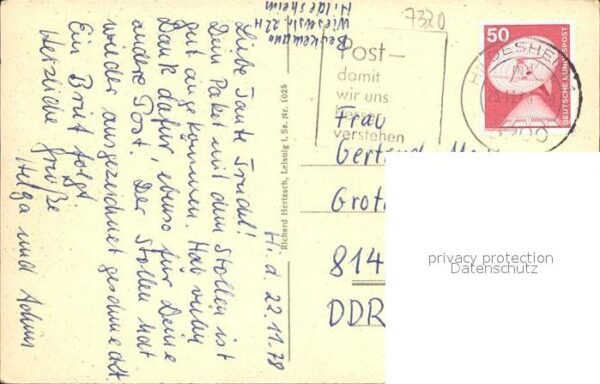 Hi. d. 22.11.78
Liebe Tante Trudel!
Dein Paket mit dem Stollen ist
gut angekommen. Hab vielen
Dank dafür, ebenso für Deine
andere Post. Der Stollen hat
wieder ausgezeichnet geschmeckt.
Ein Brief folgt.
Herzliche Grüße
Helga und Achim
Wiesenstr. 22H
Hildesheim
Richard Hertzsch, Leisnig i. Sa. Nr. 1025
7320
Post-
damit
wir uns
verstehen
HILDESHEIM
50
DEUTSCHE BUNDESPOST
Frau
Gertrud
814
DDR
privacy protection
Datenschutz